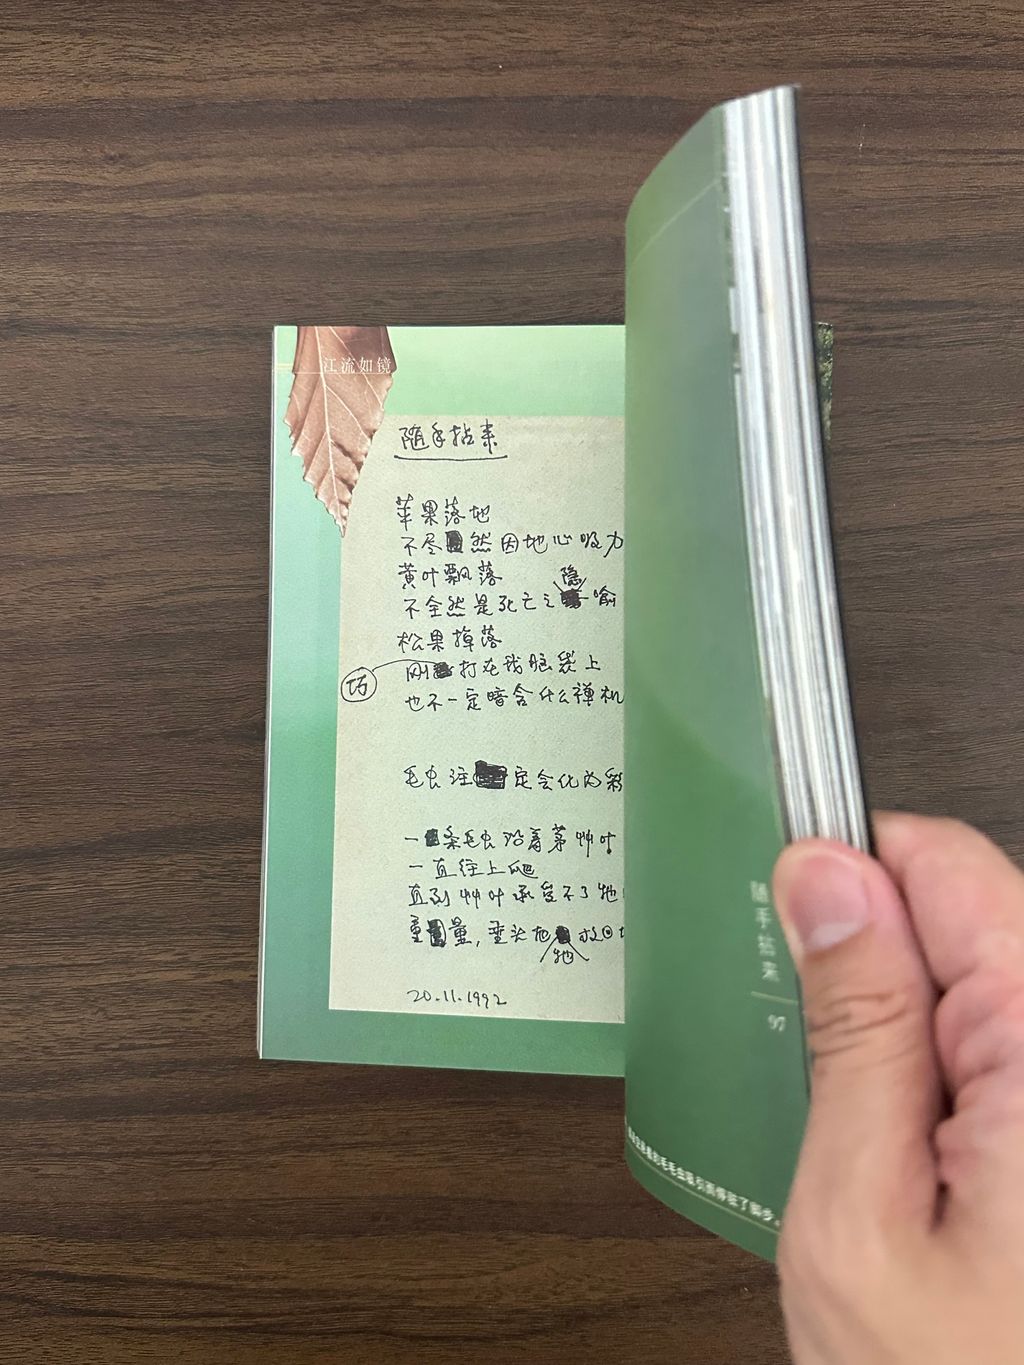 江流如镜
随手拈来
苹果落地
不尽然因地心吸力
黄叶飘落
不全然是死亡之隐喻
松果掉落
刚巧打在我脑袋上
也不一定暗含什么禅机
毛虫注定会化为彩
一条毛虫沿着茅艸叶
一直往上爬
直到艸叶承受不了牠
重量，弯头把牠放回
20.11.1992
随手拈来
97
的毛毛虫吸引而停驻了脚步。